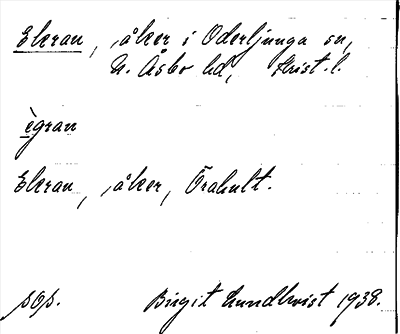 Ekran, åker i Oderljunga sn,
N. Åsbo hd, Krist. l.
ègran
Ekran, åker, Örahult.
pop. Birgit Lundkvist 1938.